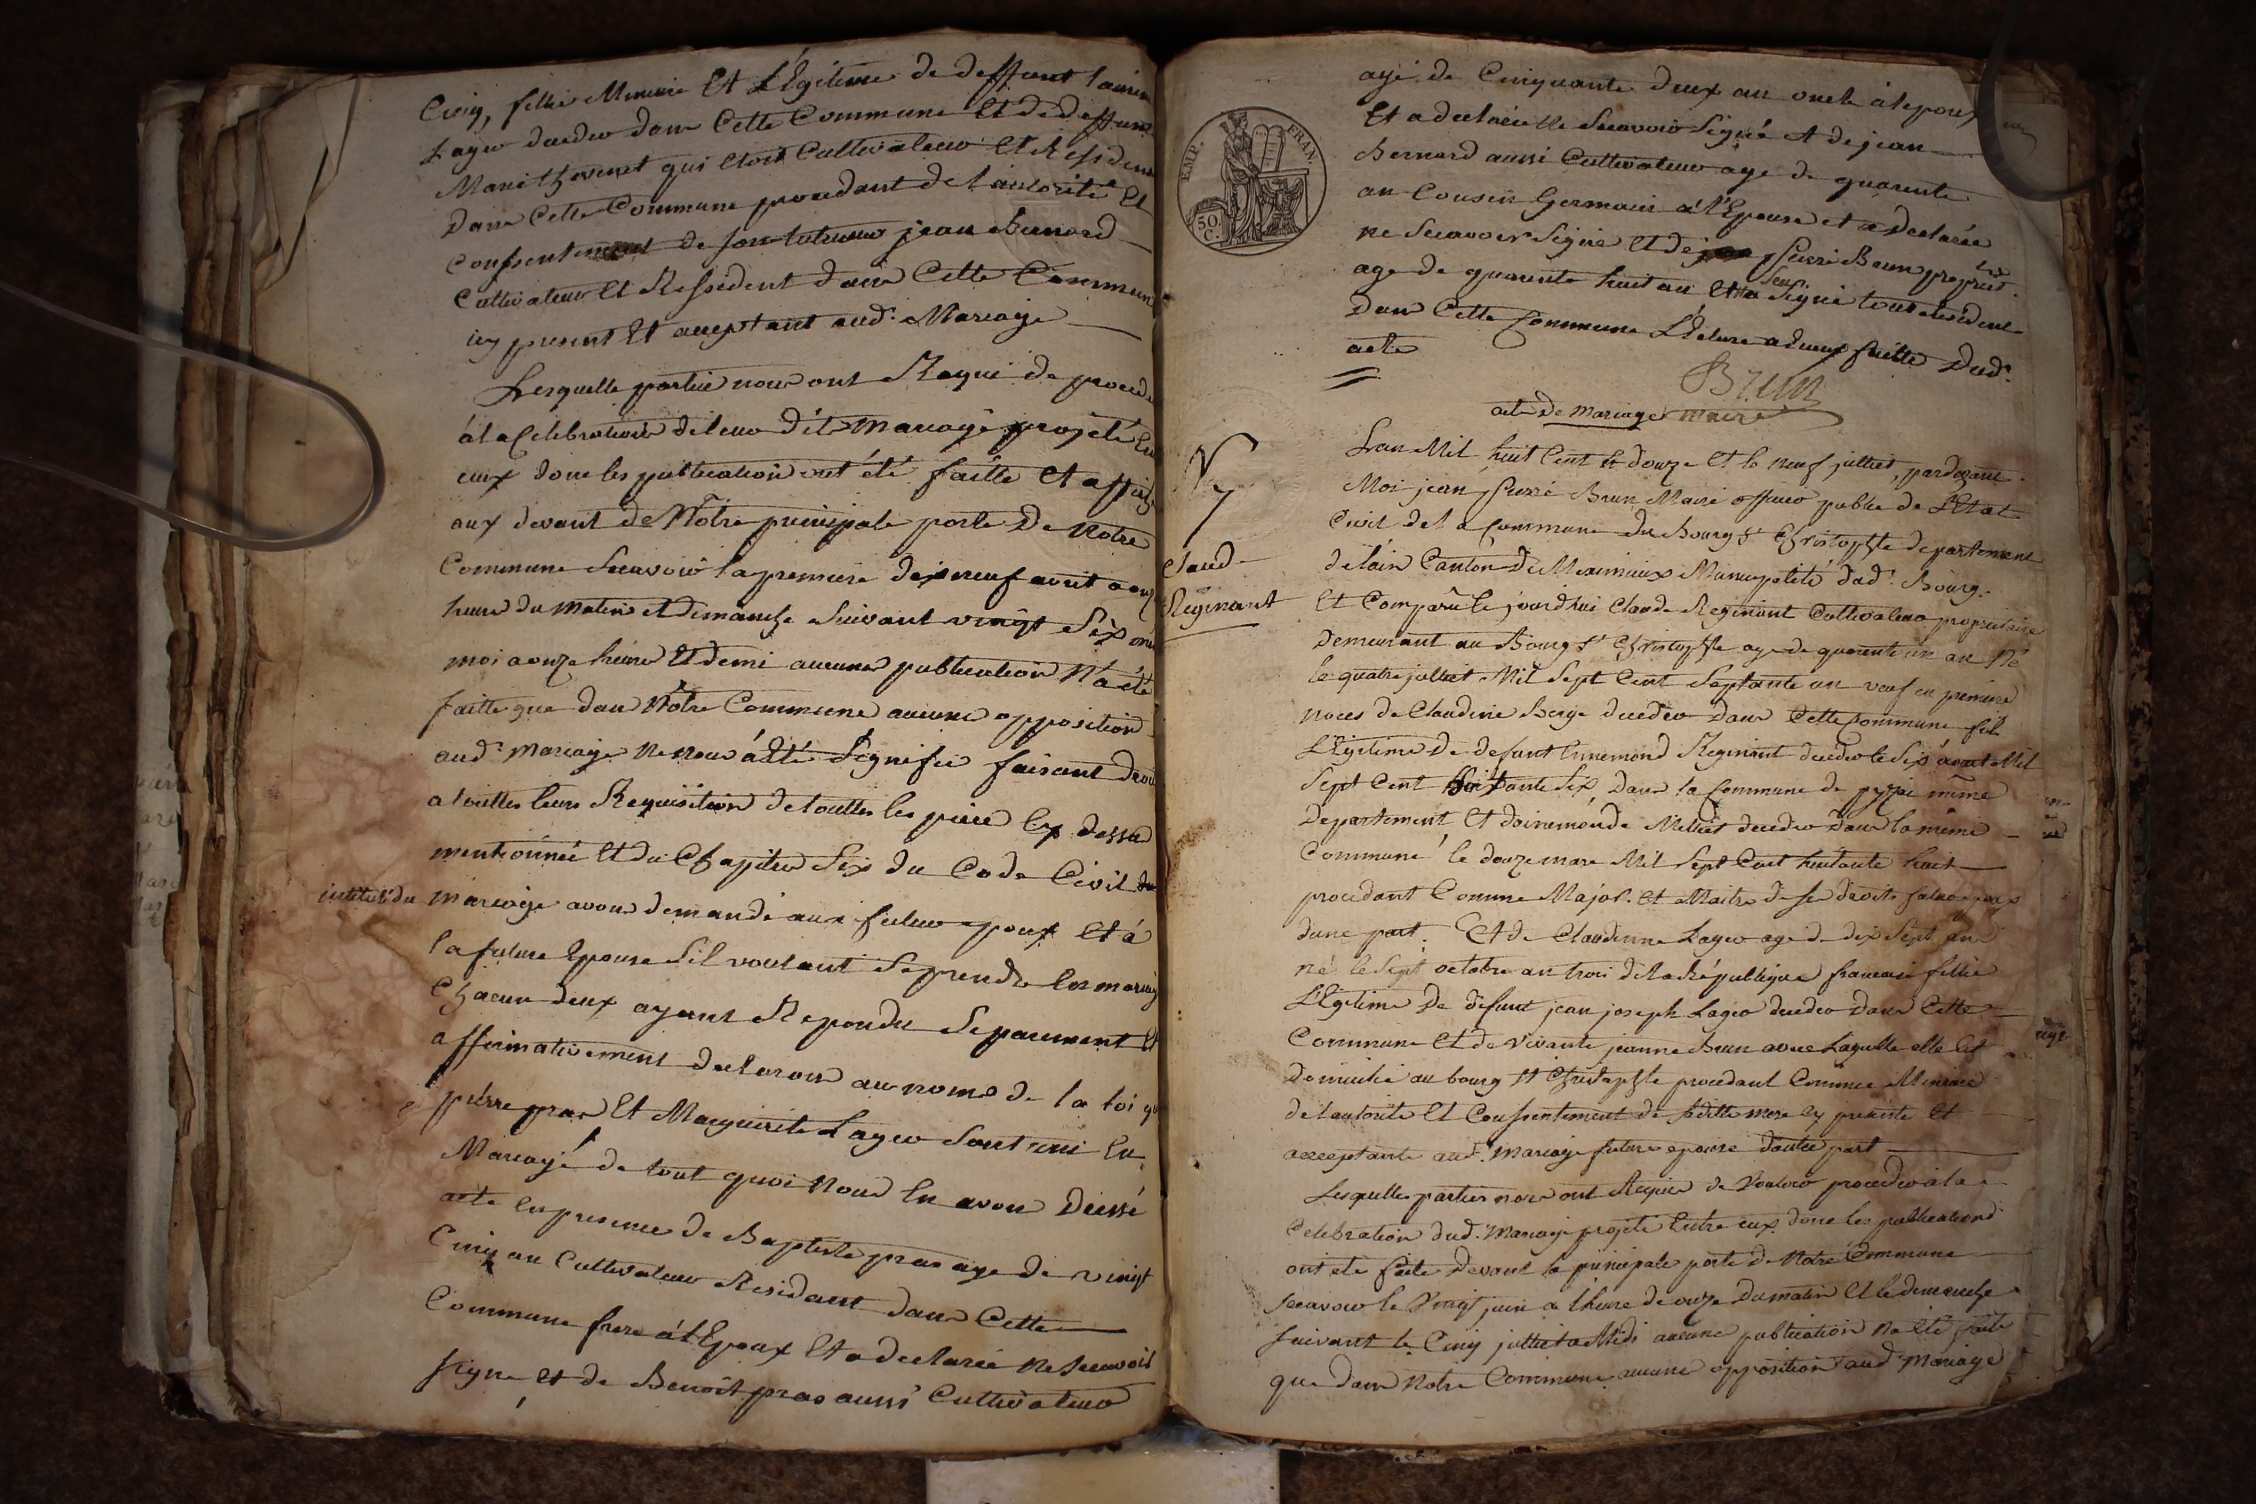 Cinq, fillie Mineure Et LEgitime de deffunt laurent
Lager decedeo dans Cette Commune Et de deffunte
Marie thevenet qui etoit Cultivateur Et Resident
Dans Cette Commune procedant de l'autorité Et
Consentement de son tuteur jean Bernard
Cultivateur Et Ressident dans Cette Commune
icy present Et acceptant aud. Mariage
Lesquelle partie nous ont Requi de proceder
à la Celebration de leur dit mariage projeté En
eux donc les publication ont été faitte Et affiche
aux devant de Notre principale porte De Notre
Commune Scavoir la premiere dixneuf avril a onze
heure du matin et dimanche suivant vingt Six
moi a onze heure Et demi aucune publication N'a été
faitte que dans Nôtre Commune aucune opposition
aud. mariage Ne nous à Eté Signifié faisant droit
a touttes leurs Requisition de touttes les piece Cy dessus
mentionnée Et du Chapitre Six du Code Civil
intitulé du mariage avons demandé aux futur epoux Et à
la future Epouse Sil voulant Se prendre En mariage
Chacun deux ayant Repondu Separement Et
affirmativement declarons au nome de la loi que
pierre pras Et Marguerite Lager Sont uni En
Mariagé de tout quoi Nous En avons Dressé
acte En presence de Baptiste pras age de vingt
Cinq an Cultivateur Residant dans Cette
Commune frere à l'Epoux Et a declarée Ne Scavoir
Signe et de Benoit pras aussi Cultivateur
EMP. FRAN.
50 C.
agé de Cinquante deux an oncle à lepoux
Et a declarée Ne Scavoir Signé Et de jean
Bernard aussi Cultivateur age de quarente
an Cousin Germain à l'Epouse et a Declarée
ne Scavoir Signé Et de pierre Brun propriet.
age de quarente huit an Et a Signé tous residents
Dans Cette Commune Lecture a eux faitte Dud.
acte
Brun
maire
acte De mariage
V
7
Claude
Reginant
Lan Mil huit Cent Et douze Et le neuf juillet, pardevant
Moi jean pierre Brun Maire officier public de LEtat
Civil de la Commune du Bourg St Christophle departement
de lain Canton de Meximieux Municipalité dud. Bourg.
Et Comparû le jourdhui Claude Reginant Cultivateur proprietaire
Demeurant au Bourg St Christophle age de quarente un an Né
le quatre juillet Mil Sept Cent Septante un veuf en premiere
noces de Claudine Berge decedeo Dans Cette Commune fils
LEgitime De defunt Ennemond Reginant decedeo le Six aout Mil
Sept Cent Huitante Six Dans la Commune de même
Departement Et Melliet decedeo Dans la même
Commune le douze mars Mil Sept Cent huitante huit
procedant Comme Major. Et Maitre de Se droits futur epoux
dune part. Et de Claudinne Lager age de dix Sept an
né le Sept octobre an trois de la République francaise fillie
LEgitime De defunt jean joseph Lager decedeo Dans Cette
Commune Et de vivante jeanne Brun avec Laquelle elle Est
Domicilie au bourg St Christophle procedant Comme Mineure
de l'autorite Et Consentement de Saditte mere Cy presente Et
acceptante aud. Mariage future epouse dautre part
Lesquelles parties nous ont Requis de vouloir procedeo a la
Celebration dud. Mariage projeté Entre eux donc les publications
ont été faite Devant la principale porte de Notre Commune
Scavoir le Vingt juin a l'heure de onze Du matin Et le dimanche
Suivant le Cinq juillet a Midi aucune publication Na été faite
que dans Notre Commune aucune opposition aud Mariage